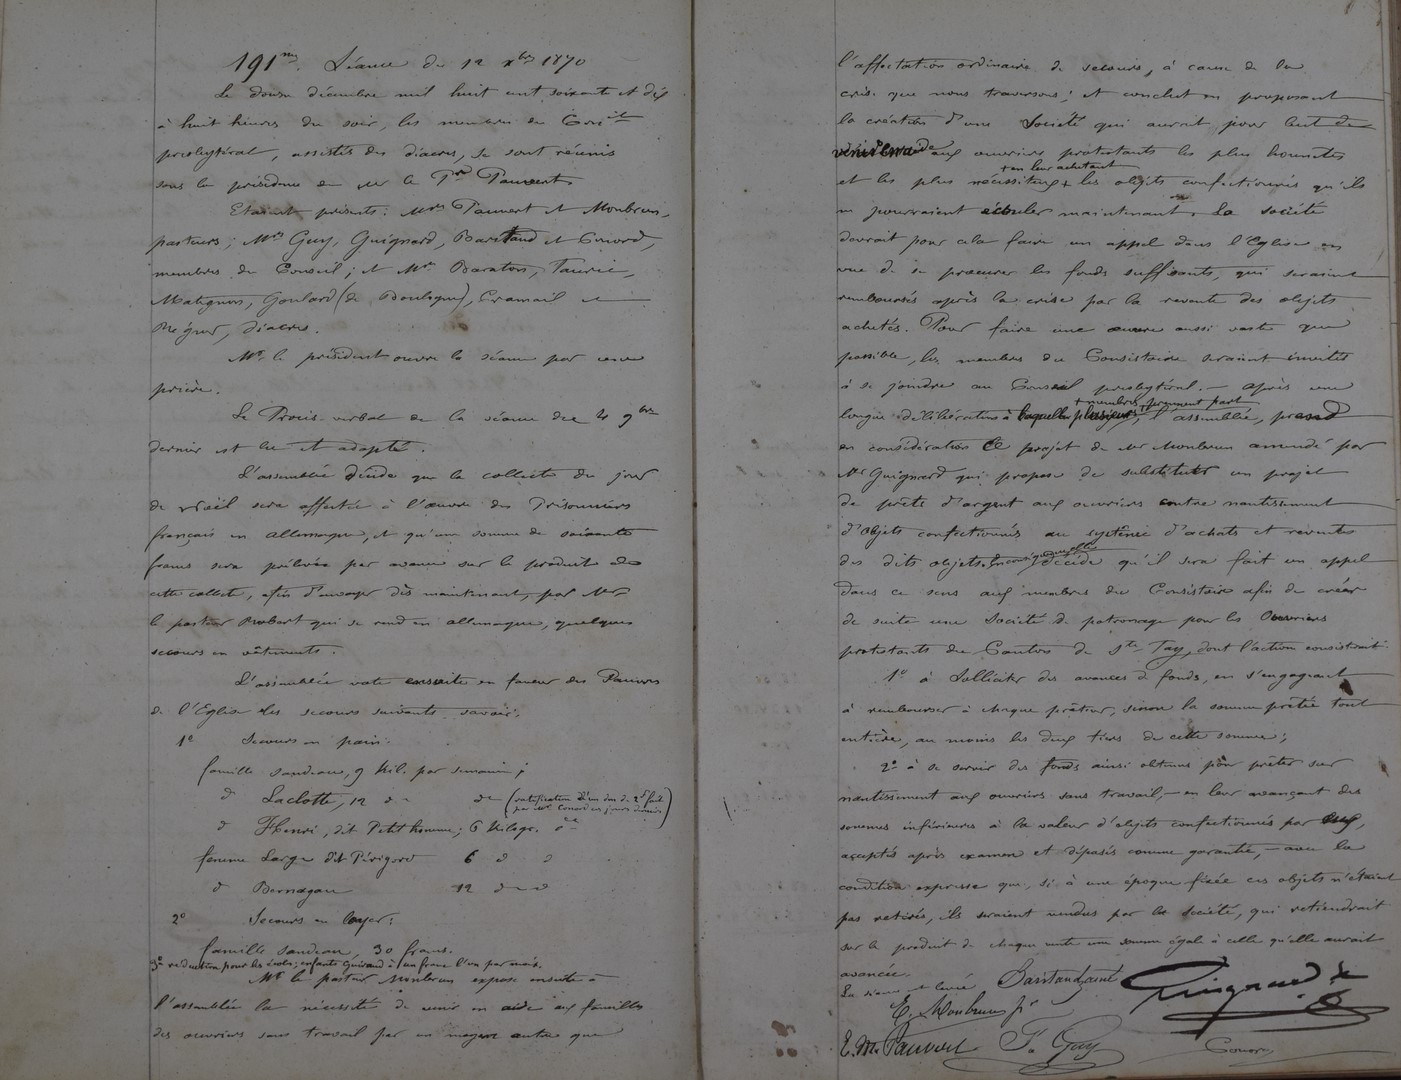 191me Séance du 12 xbre 1870
Le douze décembre mil huit cent soixante et dix
à huit heures du soir, les membres du Conseil
presbytéral, assistés des diacres, se sont réunis
sous la présidence de Mr le Pr Pauvert
Etaient présents: Mrs Pauvert et Monbrun,
pasteurs; Mrs Guy, Guignard, Baritaud et Conord,
membres du Conseil; et Mrs Baraton,
Matignon, Goulard (de Boulogne), Cramail et
Régnier, diacres.
Mr le président ouvre la séance par une
prière.
Le Procès-verbal de la séance du 4 9bre
dernier est lu et adopté.
L'assemblée décide que la collecte du jour
de Noël sera affectée à l'œuvre des Prisonniers
français en Allemagne, et qu'une somme de soixante
francs sera prélevée par avance sur le produit de
cette collecte, afin d'envoyer dès maintenant, par Mr
le pasteur Robert qui se rend en Allemagne, quelques
secours en vêtements.
L'assemblée vote ensuite en faveur des Pauvres
de l'Eglise les secours suivants, savoir:
1e Secours en pain:
famille Sandeau, 9 kil. par semaine;
d Laclotte, 12 d d (ratification d'un don de fait
par Mr Conord ces jours derniers)
d Henri, dit Petit homme; 6 kilogr. d
femme Large dit Périgord 6 d d
d Bernageau 12 d d
2o Secours en loyer:
famille Sandeau, 30 francs.
3o réduction pour les écoles; enfants Guiraud à un franc l'un par mois.
Mr le pasteur Monbrun expose ensuite à
l'assemblée la nécessité de venir en aide aux familles
des ouvriers sans travail par un moyen autre que
l'affectation ordinaire de secours, à cause de la
crise que nous traversons; et conclut en proposant
la création d'une Société qui aurait pour but de
aux ouvriers protestants les plus honnêtes
+ en leur achetant
et les plus nécessiteux + les objets confectionnés qu'ils
ne pourraient écouler maintenant. La société
devrait pour cela faire un appel dans l'Eglise en
vue de se procurer les fonds suffisants, qui seraient
remboursés après la crise par la revente des objets
achetés. Pour faire une œuvre aussi vaste que
possible, les membres du Consistoire seraient invités
à se joindre au Conseil presbytéral. — Après une
+ membres prennent part
longue délibération à laquelle plusieurs + l'assemblée, prend
en considération le projet de Mr Monbrun amendé par
Mr Guignard qui propose de substituer un projet
de prêts d'argent aux ouvriers contre nantissement
d'objets confectionnés au système d'achats et reventes
des dits objets. décide qu'il sera fait un appel
dans ce sens aux membres du Consistoire afin de créer
de suite une Société de patronage pour les Ouvriers
protestants du Canton de Ste Foy, dont l'action consisterait:
1o à Solliciter des avances de fonds, en s'engageant
à rembourser à chaque prêteur, sinon la somme prêtée tout
entière, au moins les deux tiers de cette somme;
2o à se servir des fonds ainsi obtenus pour prêter sur
nantissement aux ouvriers sans travail, — en leur avançant des
sommes inférieures à la valeur d'objets confectionnés par eux,
acceptés après examen et déposés comme garantie, — avec la
condition expresse que, si à une époque fixée ces objets n'étaient
pas retirés, ils seraient vendus par la société, qui retiendrait
sur le produit de chaque vente une somme égale à celle qu'elle aurait
avancée.
La séance est levée Baritaud Guignard
E. Monbrun pr
E. M. Pauvert F. Guy Conord